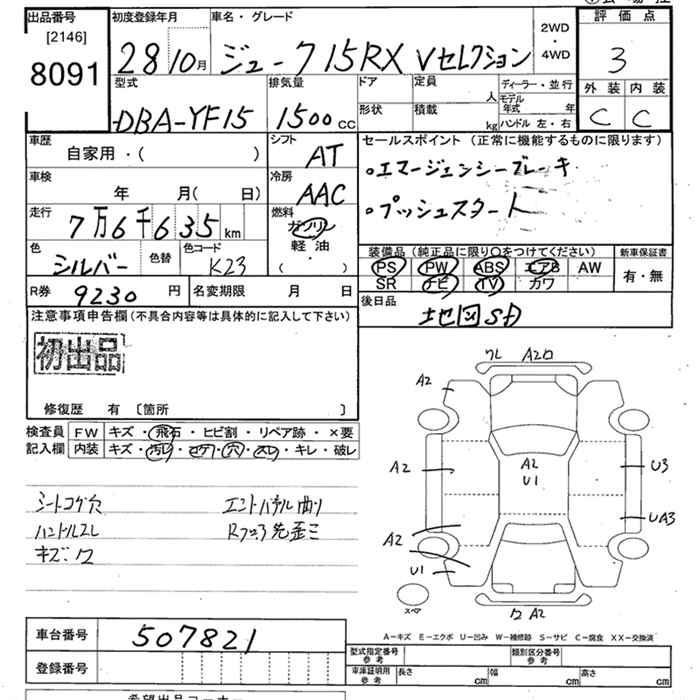 出品番号
[2146]
8091
初度登録年月
28 10月
車名・グレード
ジューク 15RX Vセレクション
2WD
・
4WD
評価点
3
外装 内装
C C
型式
DBA-YF15
排気量
1500cc
ドア
形状
定員
人
積載
kg
ディーラー・並行
モデル年式 年
ハンドル 左・右
車歴
自家用・( )
シフト
AT
セールスポイント(正常に機能するものに限ります)
・エマージェンシーブレーキ
・プッシュスタート
車検
年 月( 日)
冷房
AAC
走行
7万6千635km
燃料
ガソリン
軽油
( ・ )
色
シルバー
色替
色コード
K23
装備品(純正品に限り○をつけてください)
PS PW ABS エアB AW
SR ナビ TV カワ
新車保証書
有・無
R券
9230円
名変期限 月 日
後日品
地図SD
注意事項申告欄(不具合内容等は具体的に記入して下さい)
初出品
修復歴 有 〔箇所 〕
検査員記入欄
FW キズ・飛石・ヒビ割・リペア跡・×要
内装 キズ・汚レ・コゲ・穴・スレ・キレ・破レ
シートコゲ穴
ハンドルスレ
キズ・ワ
エンドパネル曲り
Rフロア先歪ミ
ワレ A20
A2
A2
A2
U1
U3
UA3
A2
U1
スペア
ワ A2
A-キズ E-エクボ U-凹み W-補修跡 S-サビ C-腐食 XX-交換済
車台番号
507821
登録番号
型式指定番号
参考
類別区分番号
参考
車庫証明用
参考
長さ cm 幅 cm 高さ cm
希望出品コーナー